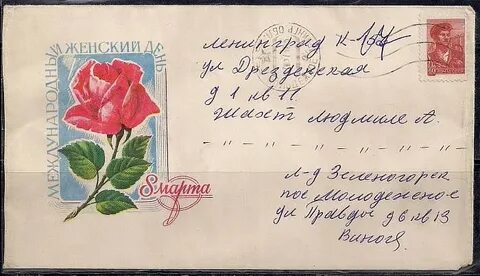 МЕЖДУНАРОДНЫЙ ЖЕНСКИЙ ДЕНЬ
8 марта
Ленинград К-
ул Дрезденская
д 1 кв 11
Людмиле А.
— " — " — " — " — " —
Л-д Зеленогорск
пос Молодежное
ул Правды д 6 кв 13